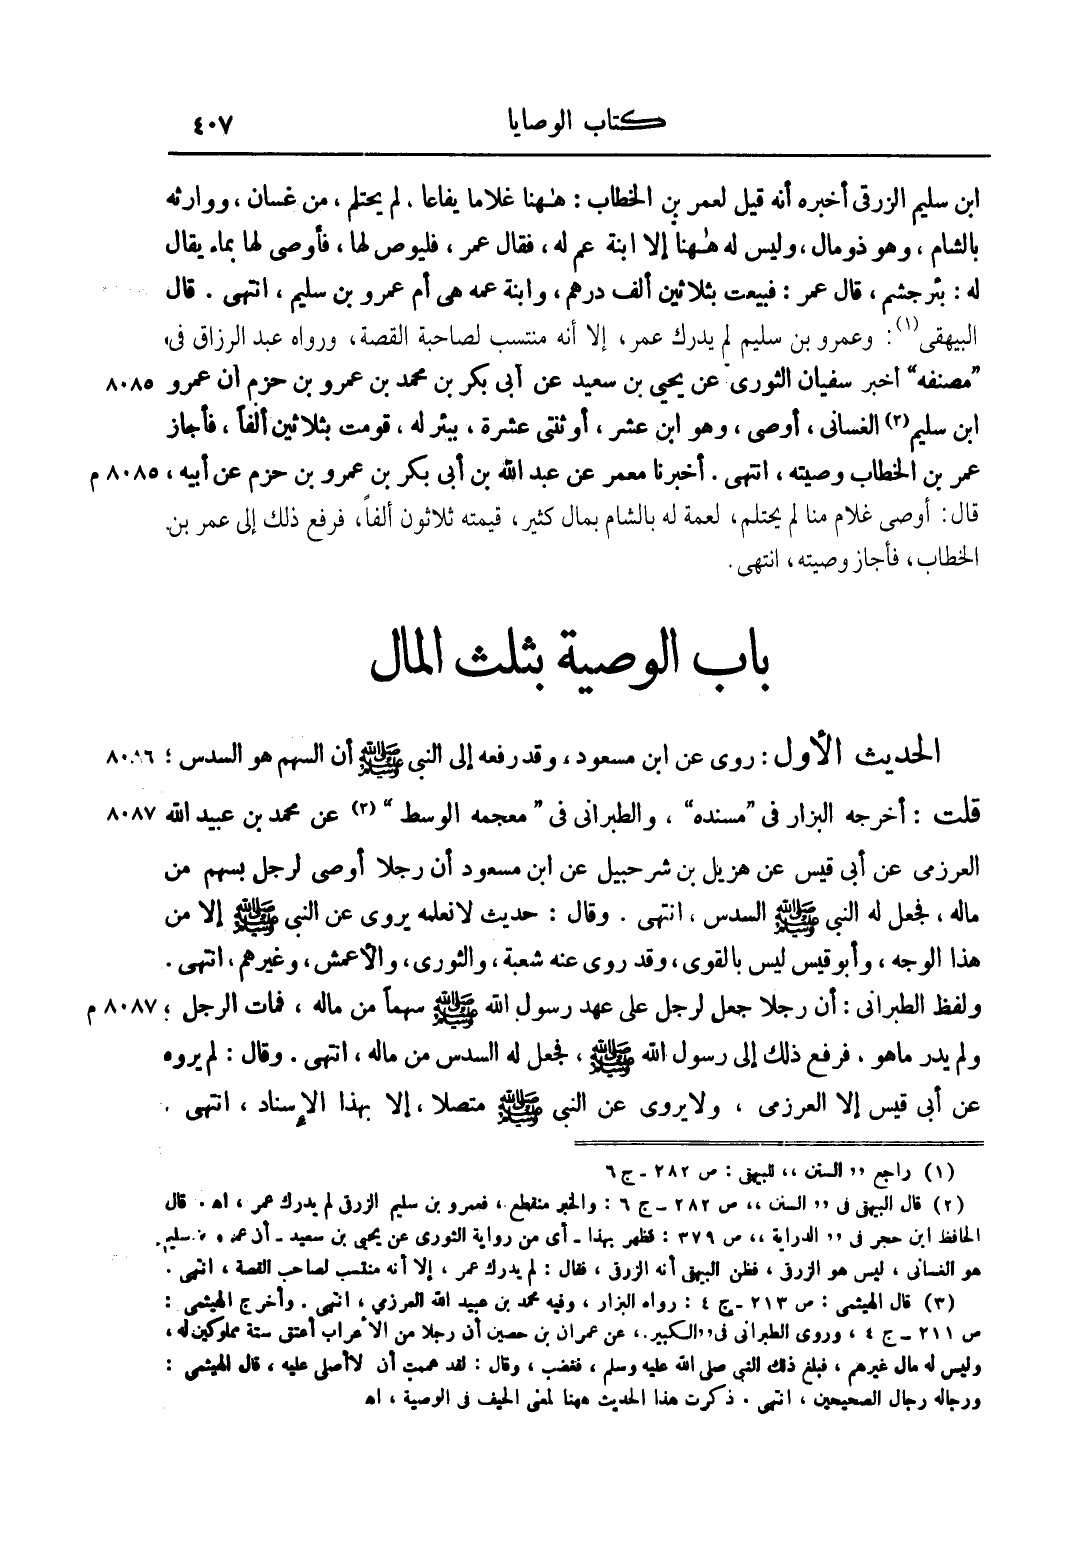 كتاب الوصايا ٤٠٧
ابن سليم الزرقى أخبره أنه قيل لعمر بن الخطاب : هٰهنا غلاما يفاعا ، لم يحتلم ، من غسان ، ووارثه
بالشام ، وهو ذو مال ، وليس له هٰهنا إلا ابنة عم له ، فقال عمر ، فليوص لها ، فأوصى لها بماء يقال
له : بئر جشم ، قال عمر : فبيعت بثلاثين ألف درهم ، وابنة عمه هى أم عمرو بن سليم ، انتهى . قال
البيهقى (١) : وعمرو بن سليم لم يدرك عمر ، إلا أنه منتسب لصاحبة القصة ، ورواه عبد الرزاق فى
”مصنفه“ أخبر سفيان الثورى عن يحيى بن سعيد عن أبى بكر بن محمد بن عمرو بن حزم أن عمرو ٨٠٨٥
ابن سليم (٢) الغسانى ، أوصى ، وهو ابن عشر ، أو ثنتى عشرة ، ببئر له ، قومت بثلاثين ألفاً ، فأجاز
عمر بن الخطاب وصيته ، انتهى . أخبرنا معمر عن عبد الله بن أبى بكر بن عمرو بن حزم عن أبيه ، ٨٠٨٥ م
قال : أوصى غلام منا لم يحتلم ، لعمة له بالشام بمال كثير ، قيمته ثلاثون ألفاً ، فرفع ذلك إلى عمر بن
الخطاب ، فأجاز وصيته ، انتهى .
باب الوصية بثلث المال
الحديث الأول : روى عن ابن مسعود ، وقد رفعه إلى النبى ﷺ أن السهم هو السدس ؛ ٨٠٨٦
قلت : أخرجه البزار فى ”مسنده“ ، والطبرانى فى ”معجمه الوسط“ (٣) عن محمد بن عبيد الله ٨٠٨٧
العرزمى عن أبى قيس عن هزيل بن شرحبيل عن ابن مسعود أن رجلا أوصى لرجل بسهم من
ماله ، فجعل له النبى ﷺ السدس ، انتهى . وقال : حديث لا نعلمه يروى عن النبى ﷺ إلا من
هذا الوجه ، وأبو قيس ليس بالقوى ، وقد روى عنه شعبة ، والثورى ، والأعمش ، وغيرهم ، انتهى .
ولفظ الطبرانى : أن رجلا جعل لرجل على عهد رسول الله ﷺ سهماً من ماله ، فمات الرجل ، ٨٠٨٧ م
ولم يدر ماهو . فرفع ذلك إلى رسول الله ﷺ ، فجعل له السدس من ماله ، انتهى . وقال : لم يروه
عن أبى قيس إلا العرزمى ، ولا يروى عن النبى ﷺ متصلا ، إلا بهذا الإسناد ، انتهى .
(١) راجع ,, السنن ،، للبيهقى : ص ٢٨٢ – ج ٦
(٢) قال البيهقى فى ,, السنن ،، ص ٢٨٢ – ج ٦ : والخبر منقطع ، فعمرو بن سليم الزرقى لم يدرك عمر ، اه . قال
الحافظ ابن حجر فى ,, الدراية ،، ص ٣٧٩ : فظهر بهذا – أى من رواية الثورى عن يحيى بن سعيد – أن عمرو بن سليم
هو الغسانى ، ليس هو الزرقى ، فظن البيهقى أنه الزرقى ، فقال : لم يدرك عمر ، إلا أنه منتسب لصاحب القصة ، انتهى .
(٣) قال الهيثمى : ص ٢١٣ – ج ٤ : رواه البزار ، وفيه محمد بن عبيد الله العرزمي ، انتهى . وأخرج الهيثمى :
ص ٢١١ – ج ٤ ، وروى الطبرانى فى ,, الكبير ،، عن عمران بن حصين أن رجلا من الأعراب أعتق ستة مملوكين له ،
وليس له مال غيرهم ، فبلغ ذلك النبى صلى الله عليه وسلم ، فغضب ، وقال : لقد هممت أن لا أصلى عليه ، قال الهيثمى :
ورجاله رجال الصحيحين ، انتهى . ذكرت هذا الحديث ههنا لمعنى الحيف فى الوصية ، اه